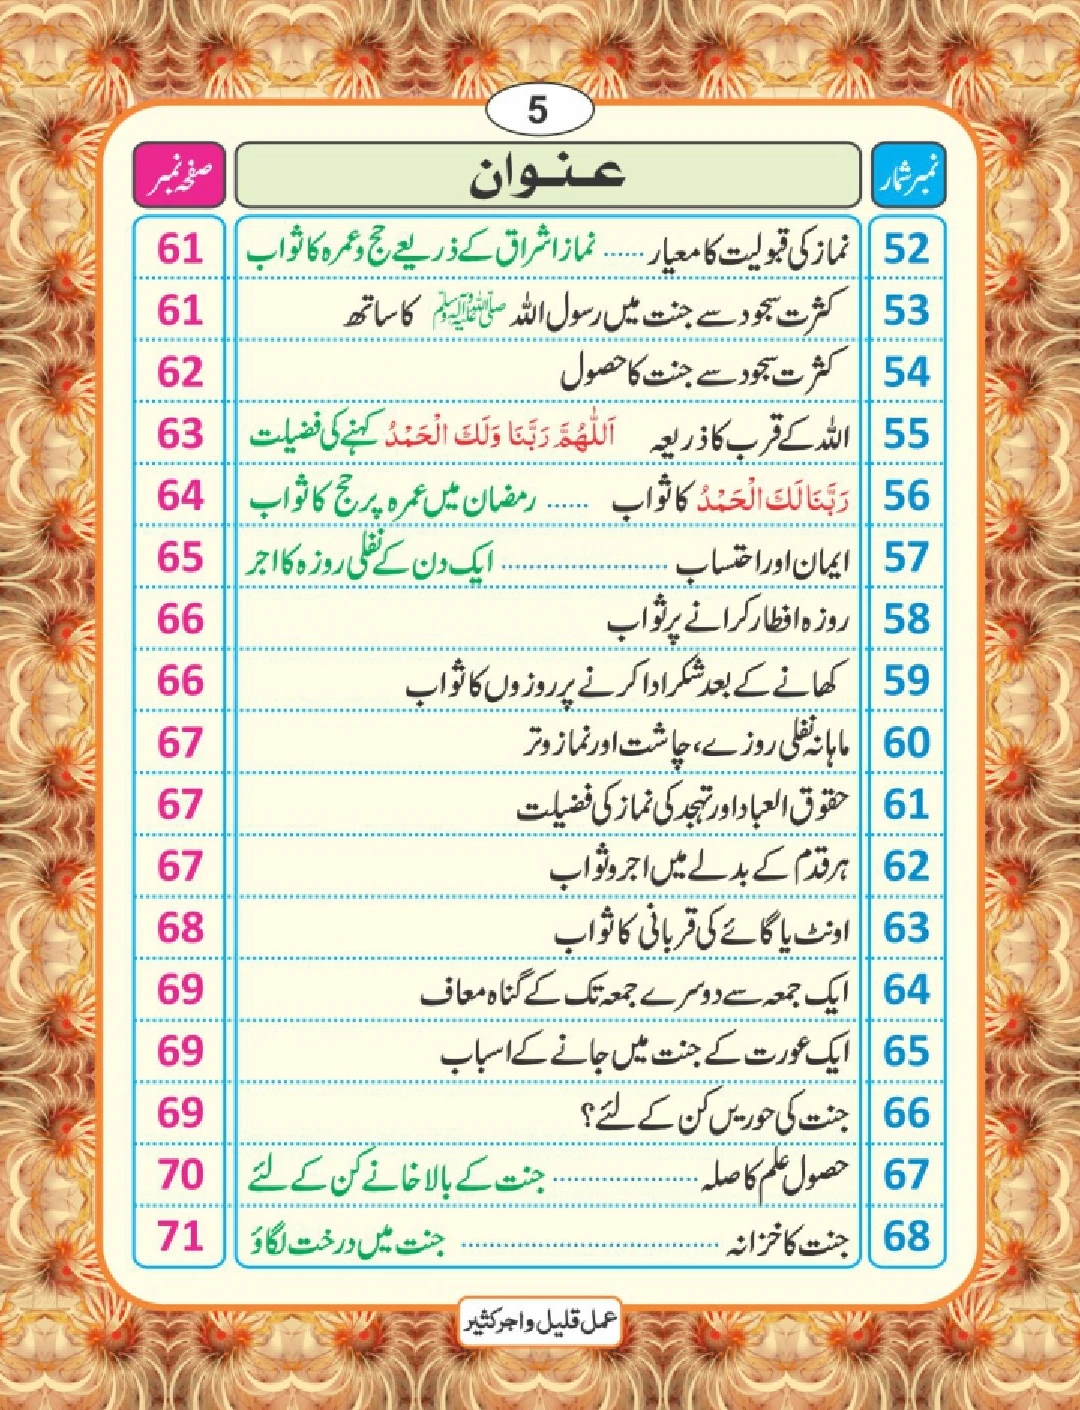 5
نمبر شمار عنوان صفحہ نمبر
52 نماز کی قبولیت کا معیار ...... نماز اشراق کے ذریعے حج و عمرہ کا ثواب 61
53 کثرت سجود سے جنت میں رسول اللہ ﷺ کا ساتھ 61
54 کثرت سجود سے جنت کا حصول 62
55 اللہ کے قرب کا ذریعہ اَللّٰهُمَّ رَبَّنَا وَلَكَ الْحَمْدُ کہنے کی فضیلت 63
56 رَبَّنَا لَكَ الْحَمْدُ کا ثواب ...... رمضان میں عمرہ پر حج کا ثواب 64
57 ایمان اور احتساب ........................ ایک دن کے نفلی روزہ کا اجر 65
58 روزہ افطار کرانے پر ثواب 66
59 کھانے کے بعد شکر ادا کرنے پر روزوں کا ثواب 66
60 ماہانہ نفلی روزے، چاشت اور نماز وتر 67
61 حقوق العباد اور تہجد کی نماز کی فضیلت 67
62 ہر قدم کے بدلے میں اجر و ثواب 67
63 اونٹ یا گائے کی قربانی کا ثواب 68
64 ایک جمعہ سے دوسرے جمعہ تک کے گناہ معاف 69
65 ایک عورت کے جنت میں جانے کے اسباب 69
66 جنت کی حوریں کن کے لئے؟ 69
67 حصول علم کا صلہ ..................... جنت کے بالا خانے کن کے لئے 70
68 جنت کا خزانہ ..................................... جنت میں درخت لگاؤ 71
عمل قلیل و اجر کثیر